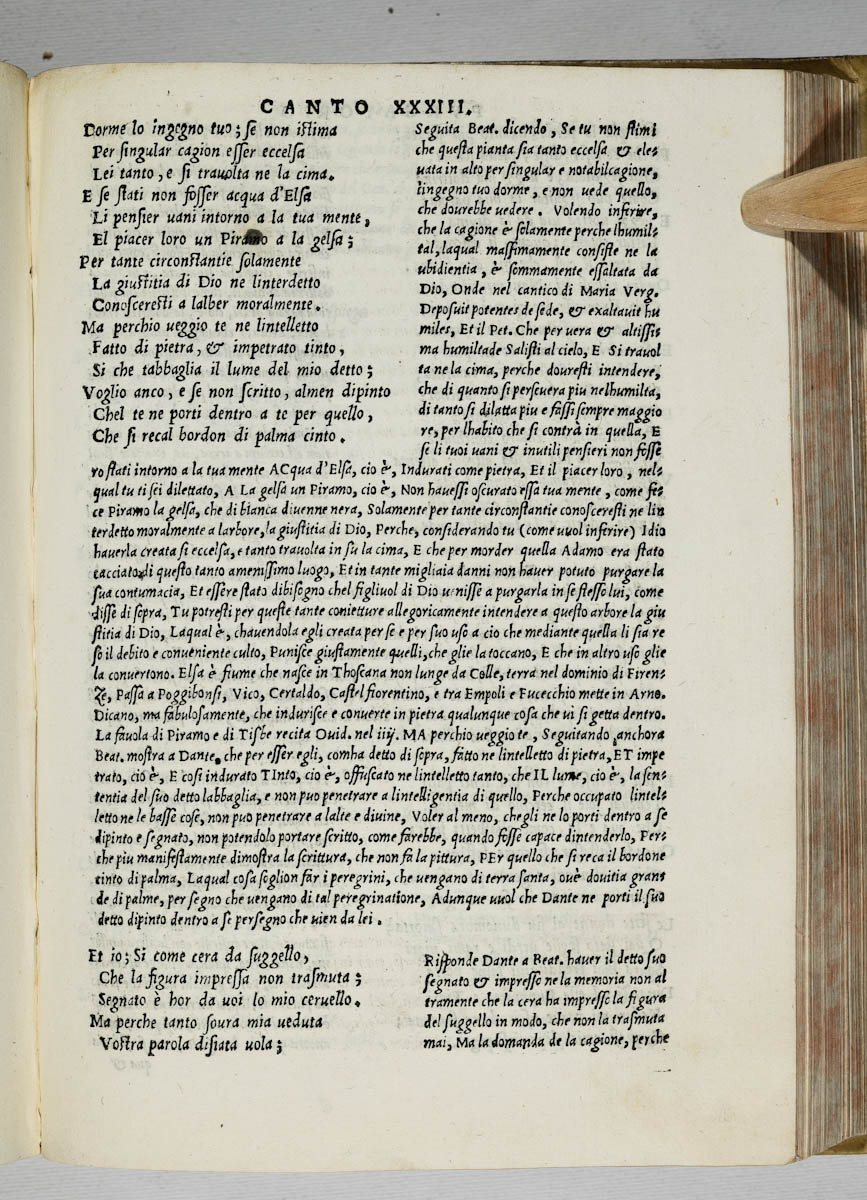 CANTO XXXIII.
Dorme lo ingegno tuo; se non istima
Per singular cagion esser eccelsa
Lei tanto, e si travolta ne la cima.
E se stati non fosser acqua d'Elsa
Li pensier uani intorno a la tua mente,
El piacer loro un Piramo a la gelsa;
Per tante circonstantie solamente
La giustitia di Dio ne linterdetto
Conosceresti a lalber moralmente.
Ma perchio ueggio te ne lintelletto
Fatto di pietra, & impetrato tinto,
Si che tabbaglia il lume del mio detto;
Voglio anco, e se non scritto, almen dipinto
Chel te ne porti dentro a te per quello,
Che si recal bordon di palma cinto.
Seguita Beat. dicendo, Se tu non stimi
che questa pianta sia tanto eccelsa & ele-
uata in alto per singular e notabil cagione,
lingegno tuo dorme, e non vede quello,
che dourebbe vedere. Volendo inferire,
che la cagione è solamente perche lhumil-
tal, laqual massimamente consiste ne la
ubidientia, è sommamente essaltata da
Dio, Onde nel cantico di Maria Verg.
Deposuit potentes de sede, & exaltauit hu
miles, Et il Pet. Che per uera & altissi-
ma humiltade Salisti al cielo, E Si trauol
ta ne la cima, perche douresti intendere,
che di quanto si perseuera piu nelhumilta,
di tanto si dilatta piu e fassi sempre maggio
re, per lhabito che si contrà in quella, E
se li tuoi uani & inutili pensieri non fosse
ro stati intorno a la tua mente ACqua d'Elsa, cio è, Indurati come pietra, Et il piacer loro, nel-
qual tu ti sei dilettato, A La gelsa un Piramo, cio è, Non hauessi oscurato essa tua mente, come fe-
ce Piramo la gelsa, che di bianca diuenne nera, Solamente per tante circonstantie conosceresti ne lin
terdetto moralmente a larbore, la giustitia di Dio, Perche, considerando tu (come uuol inferire) Idio
hauerla creata si eccelsa, e tanto trauolta in su la cima, E che per morder quella Adamo era stato
cacciato di questo tanto amenissimo luogo, Et in tante migliaia danni non hauer potuto purgare la
sua contumacia, Et essere stato dibisogno chel figliuol di Dio uenisse a purgarla in se stesso lui, come
disse di sopra, Tu potresti per queste tante coniecture allegoricamente intendere a questo arbore la giu
stitia di Dio, Laqual è, chauendola egli creata per se e per suo uso a cio che mediante quella li sia re
so il debito e conueniente culto, Punisce giustamente quelli, che glie la toccano, E che in altro uso glie
la conuertono. Elsa è fiume che nasce in Thoscana non lunge da Colle, terra nel dominio di Firen-
ze, Passa a Poggibonsi, Vico, Certaldo, Castel fiorentino, e tra Empoli e Fucecchio mette in Arno.
Dicano, ma fabulosamente, che indurisce e conuerte in pietra qualunque cosa che ui si getta dentro.
La fauola di Piramo e di Tisbe recita Ouid. nel iiij. MA perchio ueggio te, Seguitando anchora
Beat. mostra a Dante, che per esser egli, comha detto di sopra, fatto ne lintelletto di pietra, ET impe
trato, cio è, E cosi indurato TInto, cio è, offuscato ne lintelletto tanto, che IL lume, cio è, la sen-
tentia del suo detto labbaglia, e non puo penetrare a lintelligentia di quello, Perche occupato lintel-
letto ne le basse cose, non puo penetrare a lalte e diuine, Voler al meno, che gli ne lo porti dentro a se
dipinto e segnato, non potendolo portare scritto, come farebbe, quando fosse capace dintenderlo, Per-
che piu manifestamente dimostra la scrittura, che non fa la pittura, PEr quello che si reca il bordone
cinto di palma, Laqual cosa soglion far i peregrini, che uengano di terra santa, ouè douitia gran-
de di palme, per segno che uengano di tal peregrinatione, Adunque uuol che Dante ne porti il suo
detto dipinto dentro a se per segno che uien da lei.
Et io; Si come cera da suggello,
Che la figura impressa non trasmuta;
Segnato è hor da uoi lo mio ceruello.
Ma perche tanto soura mia ueduta
Vostra parola disiata uola;
Risponde Dante a Beat. hauer il detto suo
segnato & impresso ne la memoria non al
tramente che la cera ha impresso la figura
del suggello in modo, che non la trasmuta
mai, Ma la domanda de la cagione, perche